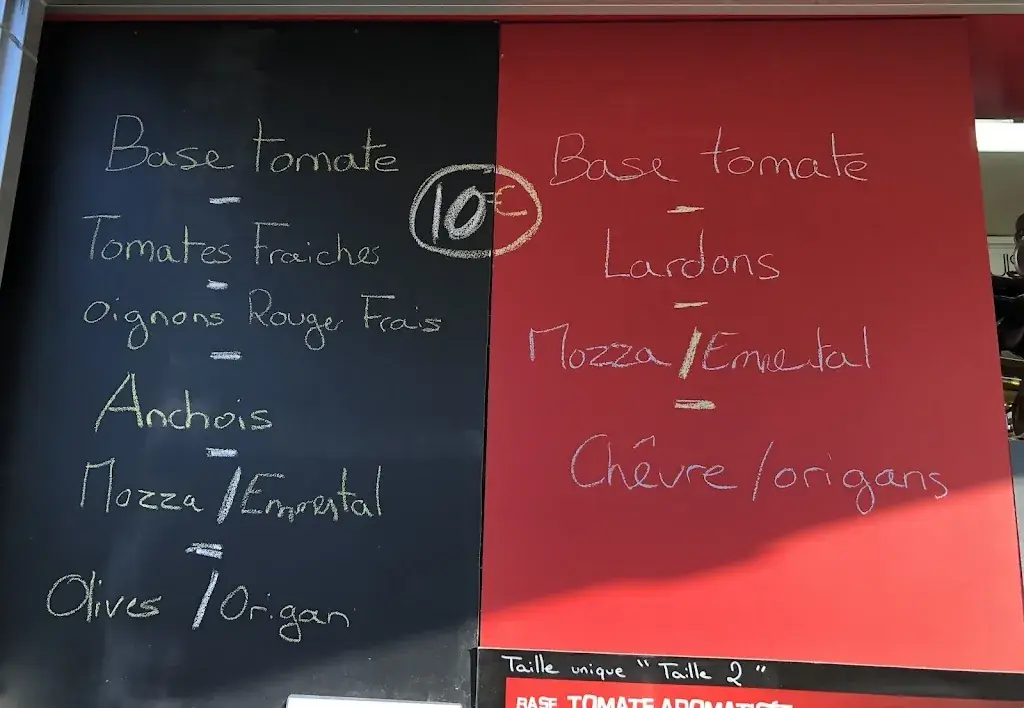 Base tomate
Tomates Fraiches
Oignons Rouger Frais
Anchois
Mozza / Emmental
Olives / Origan
10€
Base tomate
Lardons
Mozza / Emmental
Chêvre / origans
Taille unique " Taille 2 "
BASE TOMATE AROMATISÉE